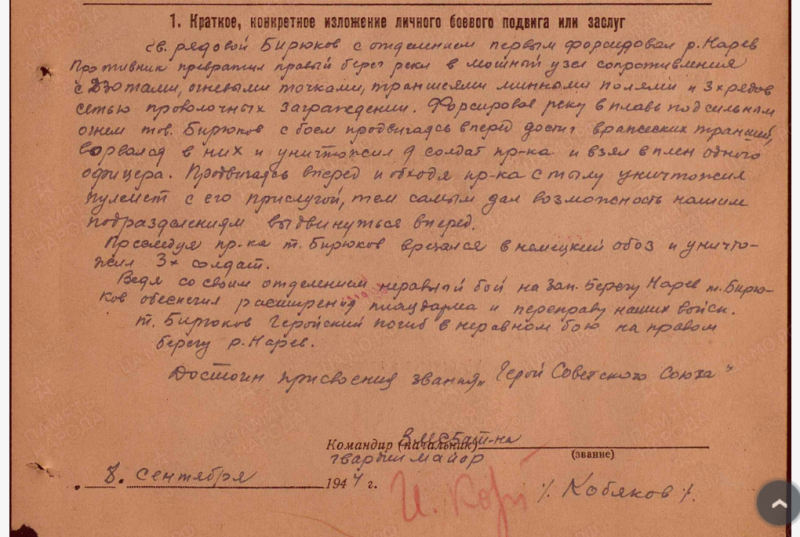 1. Краткое, конкретное изложение личного боевого подвига или заслуг
гв. рядовой Бирюков с отделением первым форсировал р. Нарев
Противник превратил правый берег реки в мощный узел сопротивления
с Дзотами, огневыми точками, траншеями минными полями и 3х рядов
сетью проволочных заграждении. Форсировав реку в плавь под сильным
огнем тов. Бирюков с боем продвигаясь вперед достиг вражеских траншей,
ворвался в них и уничтожил 9 солдат пр-ка и взял в плен одного
офицера. Продвигаясь вперед и обходя пр-ка с тылу уничтожил
пулемет с его прислугой, тем самым дал возможность нашим
подразделениям выдвинуться вперед.
Преследуя пр-ка т. Бирюков врезался в немецкий обоз и уничто-
жил 3х солдат.
Ведя со своим отделением неравный бой на Зап. Берегу Нарев т. Бирю-
ков обеспечил расширения плацдарма и переправу наших войск.
т. Бирюков Геройский погиб в неравном бою на правом
берегу р. Нарев.
Достоин присвоения звания „Герой Советского Союза"
Командир (начальник)
(звание)
гвардии майор
8. сентября 1944 г.
/. Кобяков /.